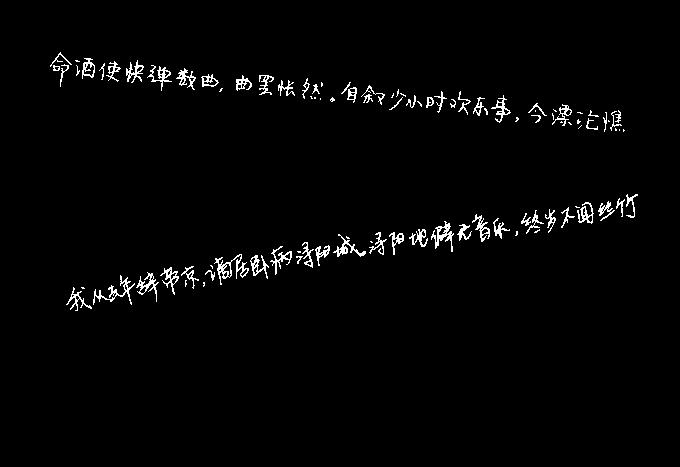 命酒使快弹数曲,曲罢怅然。自叙少小时欢乐事,今漂沦憔
我从去年辞帝京,谪居卧病浔阳城。浔阳地僻无音乐,终岁不闻丝竹